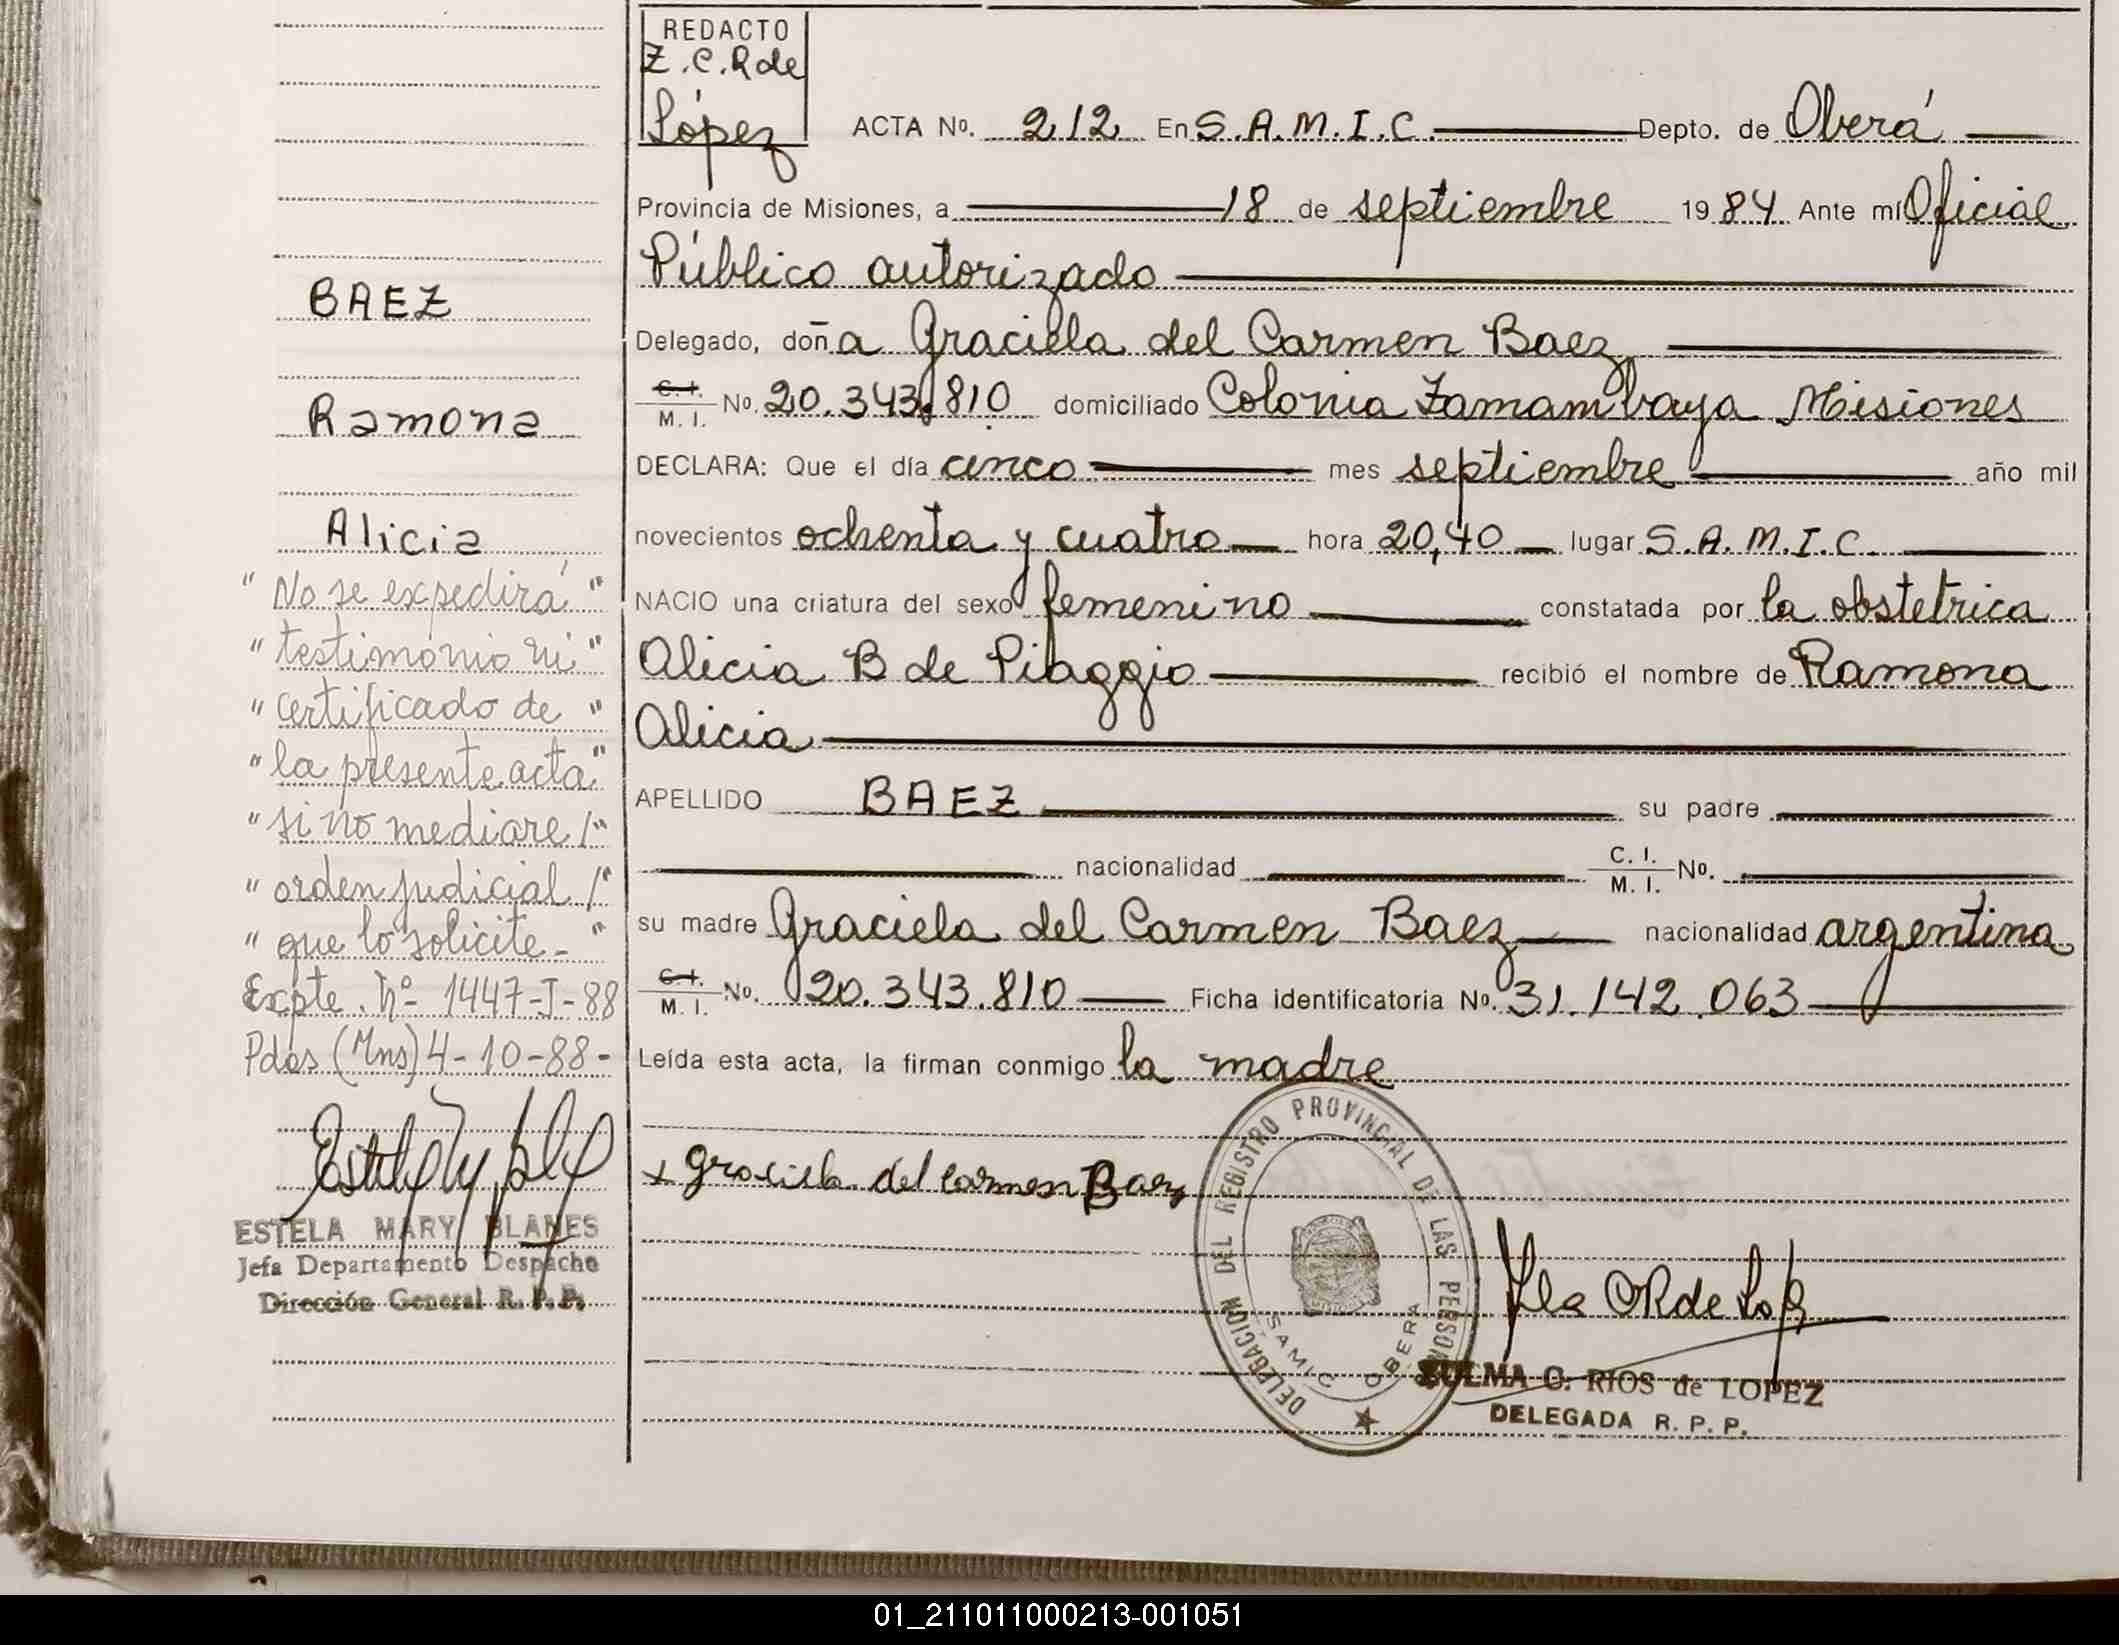 REDACTO
Z.C.R de
López
ACTA Nº. 212 En S.A.M.I.C. Depto. de Oberá
Provincia de Misiones, a 18 de septiembre 1984 Ante mí Oficial
Público autorizado
Delegado, doña Graciela del Carmen Baez
C.I. / M.I. Nº. 20.343.810 domiciliado Colonia Zamambaya Misiones
DECLARA: Que el día cinco mes septiembre año mil
novecientos ochenta y cuatro hora 20,40 lugar S.A.M.I.C.
NACIO una criatura del sexo femenino constatada por la obstetrica
Alicia B de Piaggio recibió el nombre de Ramona
Alicia
APELLIDO BAEZ su padre
nacionalidad C.I. / M.I. Nº.
su madre Graciela del Carmen Baez nacionalidad argentina
C.I. / M.I. Nº. 20.343.810 Ficha identificatoria Nº. 31.142.063
Leída esta acta, la firman conmigo la madre
x Graciela del Carmen Baez
DELEGACION DEL REGISTRO PROVINCIAL DE LAS PERSONAS
SAMIC OBERA
ZULMA C. RIOS de LOPEZ
DELEGADA R. P. P.
BAEZ
Ramona
Alicia
" No se expedirá "
" testimonio ni "
" certificado de "
" la presente acta "
" si no mediare / "
" orden judicial / "
" que lo solicite- "
Expte. Nº- 1447-I-88
Pdas (Mns) 4-10-88-
ESTELA MARY BLANES
Jefa Departamento Despacho
Dirección General R. P. P.
01_211011000213-001051